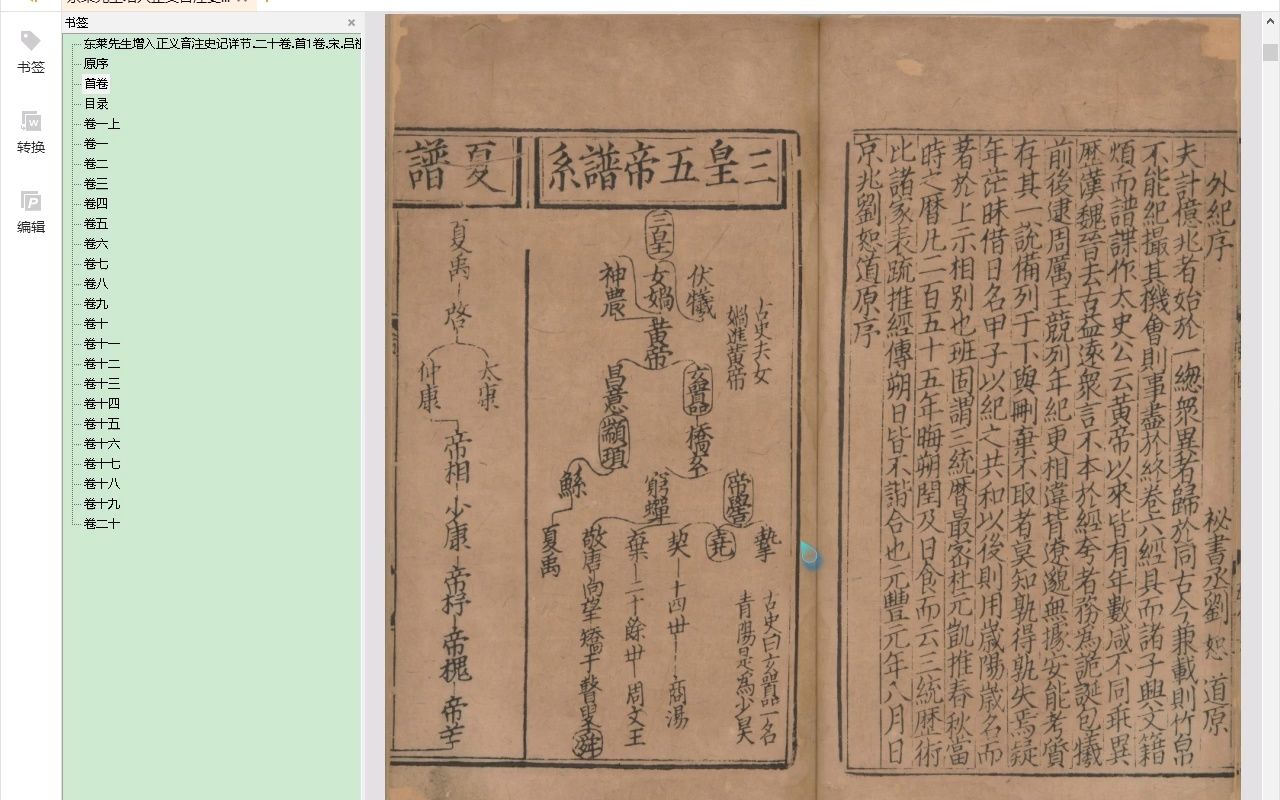 书签
书签
转换
编辑
东莱先生增入正义音注史记详节.二十卷.首1卷.宋.吕祖
原序
首卷
目录
卷一上
卷一
卷二
卷三
卷四
卷五
卷六
卷七
卷八
卷九
卷十
卷十一
卷十二
卷十三
卷十四
卷十五
卷十六
卷十七
卷十八
卷十九
卷二十
外紀序
秘書丞劉 恕 道原
夫計億兆者始於一緫衆異者歸於同古今兼載則竹帛
不能紀撮其機會則事盡於終卷六經具而諸子興文籍
煩而譜諜作太史公云黃帝以來皆有年數咸不同乖異
歴漢魏晉去古益遠衆言不本於經夸者務為詭誕包犧
前後逮周厲王競列年紀更相違背遼邈無據安能考質
存其一說備列于下與刪棄不取者莫知孰得孰失焉疑
年茫昧借日名甲子以紀之共和以後則用歲陽歲名而
著於上示相別也班固謂三統曆最宻杜元凱推春秋當
時之曆凡二百五十五年晦朔閏及日食而云三統歴術
比諸家表疏推經傳朔日皆不諧合也元豐元年八月日
京兆劉恕道原序
三皇五帝譜系
三皇
伏犧
女媧
神農
古史夫女
媧進黃帝
黃帝
玄囂
昌意
顓頊
橋玄
鯀
窮蟬
帝嚳
摯
堯
契 十四世 商湯
棄 二十餘世 周文王
敬唐 向望 矯于 瞽叟 舜
夏禹
古史曰玄囂一名
青陽是為少昊
夏譜
夏禹
啓
太康
仲康
帝相
少康
帝杼
帝槐
帝芒